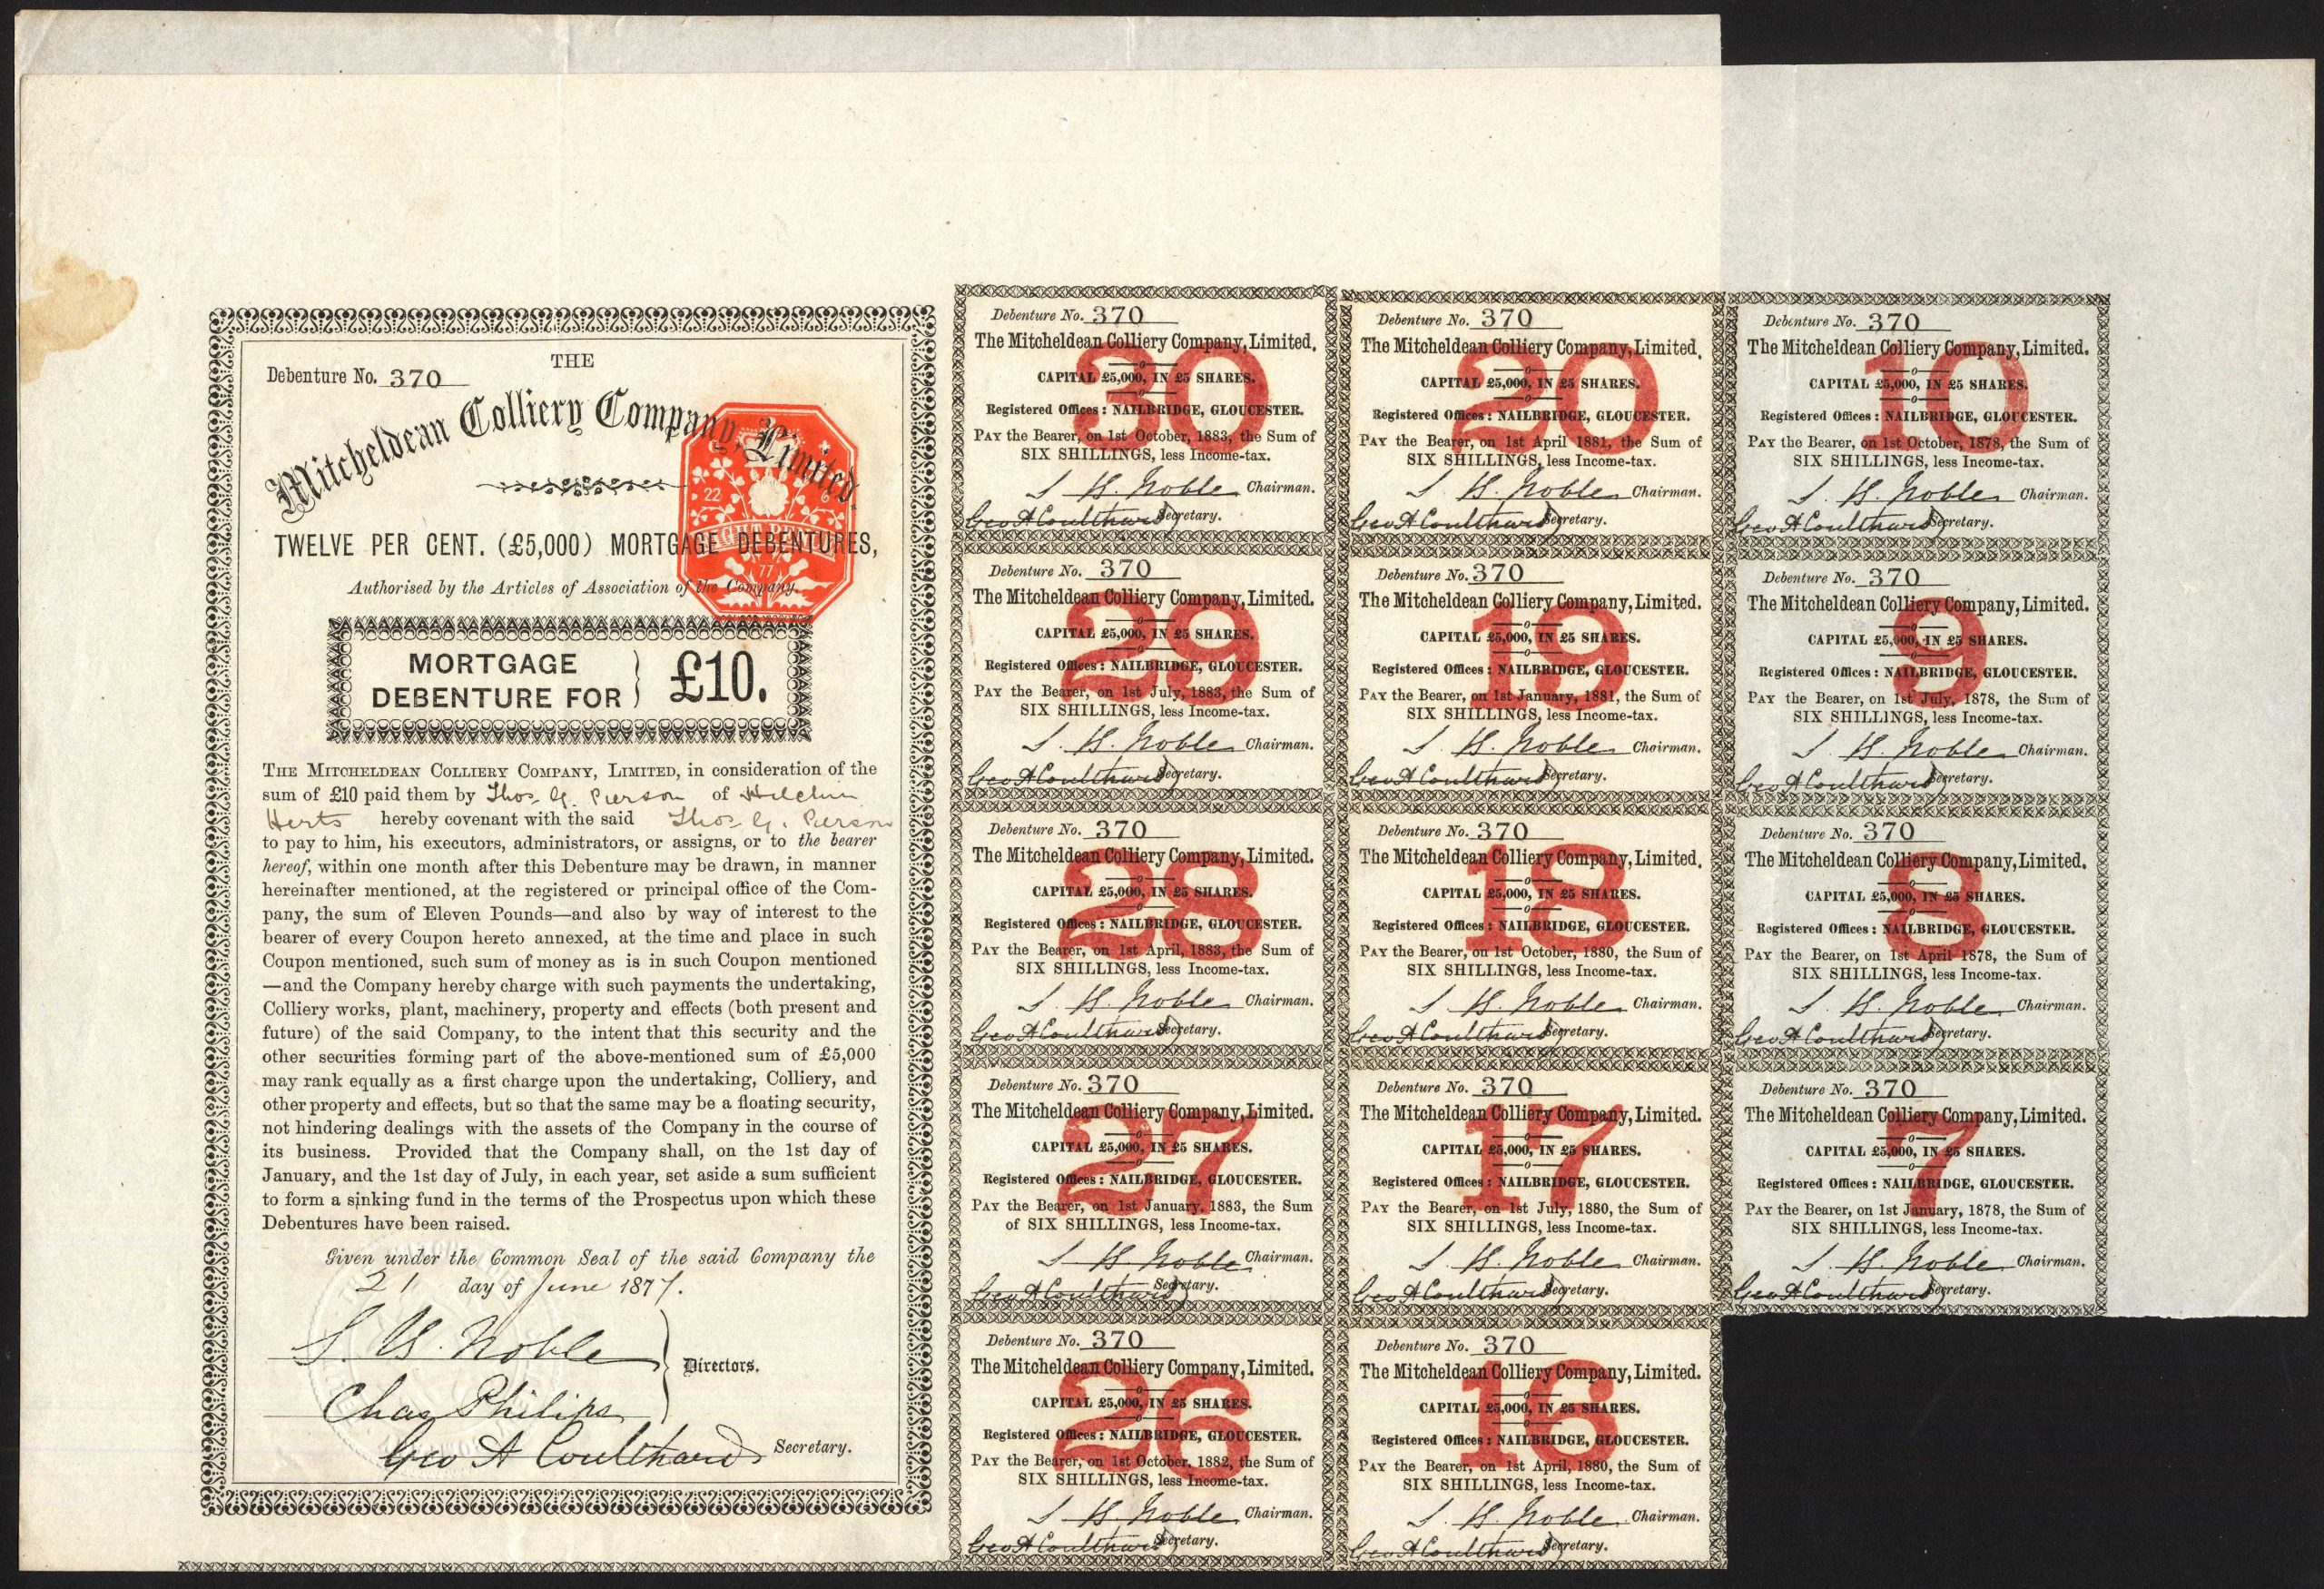 Debenture No. 370
THE
Mitcheldean Colliery Company, Limited.
22 6
EIGHT PENCE
77
TWELVE PER CENT. (£5,000) MORTGAGE DEBENTURES,
Authorised by the Articles of Association of the Company.
MORTGAGE
DEBENTURE FOR } £10.
THE MITCHELDEAN COLLIERY COMPANY, LIMITED, in consideration of the
sum of £10 paid them by Thos. G. Pierson of Hitchin
Herts hereby covenant with the said Thos. G. Pierson
to pay to him, his executors, administrators, or assigns, or to the bearer
hereof, within one month after this Debenture may be drawn, in manner
hereinafter mentioned, at the registered or principal office of the Com-
pany, the sum of Eleven Pounds—and also by way of interest to the
bearer of every Coupon hereto annexed, at the time and place in such
Coupon mentioned, such sum of money as is in such Coupon mentioned
—and the Company hereby charge with such payments the undertaking,
Colliery works, plant, machinery, property and effects (both present and
future) of the said Company, to the intent that this security and the
other securities forming part of the above-mentioned sum of £5,000
may rank equally as a first charge upon the undertaking, Colliery, and
other property and effects, but so that the same may be a floating security,
not hindering dealings with the assets of the Company in the course of
its business. Provided that the Company shall, on the 1st day of
January, and the 1st day of July, in each year, set aside a sum sufficient
to form a sinking fund in the terms of the Prospectus upon which these
Debentures have been raised.
Given under the Common Seal of the said Company the
21 day of June 1877.
S. H. Noble
Chas Philips
Directors.
Geo A Coulthard Secretary.
Debenture No. 370
The Mitcheldean Colliery Company, Limited.
30
CAPITAL £5,000, IN £5 SHARES.
Registered Offices: NAILBRIDGE, GLOUCESTER.
PAY the Bearer, on 1st October, 1883, the Sum of
SIX SHILLINGS, less Income-tax.
S. H. Noble Chairman.
Geo A Coulthard Secretary.
Debenture No. 370
The Mitcheldean Colliery Company, Limited.
29
CAPITAL £5,000, IN £5 SHARES.
Registered Offices: NAILBRIDGE, GLOUCESTER.
PAY the Bearer, on 1st July, 1883, the Sum of
SIX SHILLINGS, less Income-tax.
S. H. Noble Chairman.
Geo A Coulthard Secretary.
Debenture No. 370
The Mitcheldean Colliery Company, Limited.
28
CAPITAL £5,000, IN £5 SHARES.
Registered Offices: NAILBRIDGE, GLOUCESTER.
PAY the Bearer, on 1st April, 1883, the Sum of
SIX SHILLINGS, less Income-tax.
S. H. Noble Chairman.
Geo A Coulthard Secretary.
Debenture No. 370
The Mitcheldean Colliery Company, Limited.
27
CAPITAL £5,000, IN £5 SHARES.
Registered Offices: NAILBRIDGE, GLOUCESTER.
PAY the Bearer, on 1st January, 1883, the Sum
of SIX SHILLINGS, less Income-tax.
S. H. Noble Chairman.
Geo A Coulthard Secretary.
Debenture No. 370
The Mitcheldean Colliery Company, Limited.
26
CAPITAL £5,000, IN £5 SHARES.
Registered Offices: NAILBRIDGE, GLOUCESTER.
PAY the Bearer, on 1st October, 1882, the Sum of
SIX SHILLINGS, less Income-tax.
S. H. Noble Chairman.
Geo A Coulthard Secretary.
Debenture No. 370
The Mitcheldean Colliery Company, Limited.
20
CAPITAL £5,000, IN £5 SHARES.
Registered Offices: NAILBRIDGE, GLOUCESTER.
PAY the Bearer, on 1st April 1881, the Sum of
SIX SHILLINGS, less Income-tax.
S. H. Noble Chairman.
Geo A Coulthard Secretary.
Debenture No. 370
The Mitcheldean Colliery Company, Limited.
19
CAPITAL £5,000, IN £5 SHARES.
Registered Offices: NAILBRIDGE, GLOUCESTER.
PAY the Bearer, on 1st January, 1881, the Sum of
SIX SHILLINGS, less Income-tax.
S. H. Noble Chairman.
Geo A Coulthard Secretary.
Debenture No. 370
The Mitcheldean Colliery Company, Limited.
18
CAPITAL £5,000, IN £5 SHARES.
Registered Offices: NAILBRIDGE, GLOUCESTER.
PAY the Bearer, on 1st October, 1880, the Sum of
SIX SHILLINGS, less Income-tax.
S. H. Noble Chairman.
Geo A Coulthard Secretary.
Debenture No. 370
The Mitcheldean Colliery Company, Limited.
17
CAPITAL £5,000, IN £5 SHARES.
Registered Offices: NAILBRIDGE, GLOUCESTER.
PAY the Bearer, on 1st July, 1880, the Sum of
SIX SHILLINGS, less Income-tax.
S. H. Noble Chairman.
Geo A Coulthard Secretary.
Debenture No. 370
The Mitcheldean Colliery Company, Limited.
16
CAPITAL £5,000, IN £5 SHARES.
Registered Offices: NAILBRIDGE, GLOUCESTER.
PAY the Bearer, on 1st April, 1880, the Sum of
SIX SHILLINGS, less Income-tax.
S. H. Noble Chairman.
Geo A Coulthard Secretary.
Debenture No. 370
The Mitcheldean Colliery Company, Limited.
10
CAPITAL £5,000, IN £5 SHARES.
Registered Offices: NAILBRIDGE, GLOUCESTER.
PAY the Bearer, on 1st October, 1878, the Sum of
SIX SHILLINGS, less Income-tax.
S. H. Noble Chairman.
Geo A Coulthard Secretary.
Debenture No. 370
The Mitcheldean Colliery Company, Limited.
9
CAPITAL £5,000, IN £5 SHARES.
Registered Offices: NAILBRIDGE, GLOUCESTER.
PAY the Bearer, on 1st July, 1878, the Sum of
SIX SHILLINGS, less Income-tax.
S. H. Noble Chairman.
Geo A Coulthard Secretary.
Debenture No. 370
The Mitcheldean Colliery Company, Limited.
8
CAPITAL £5,000, IN £5 SHARES.
Registered Offices: NAILBRIDGE, GLOUCESTER.
PAY the Bearer, on 1st April 1878, the Sum of
SIX SHILLINGS, less Income-tax.
S. H. Noble Chairman.
Geo A Coulthard Secretary.
Debenture No. 370
The Mitcheldean Colliery Company, Limited.
7
CAPITAL £5,000, IN £5 SHARES.
Registered Offices: NAILBRIDGE, GLOUCESTER.
PAY the Bearer, on 1st January, 1878, the Sum of
SIX SHILLINGS, less Income-tax.
S. H. Noble Chairman.
Geo A Coulthard Secretary.